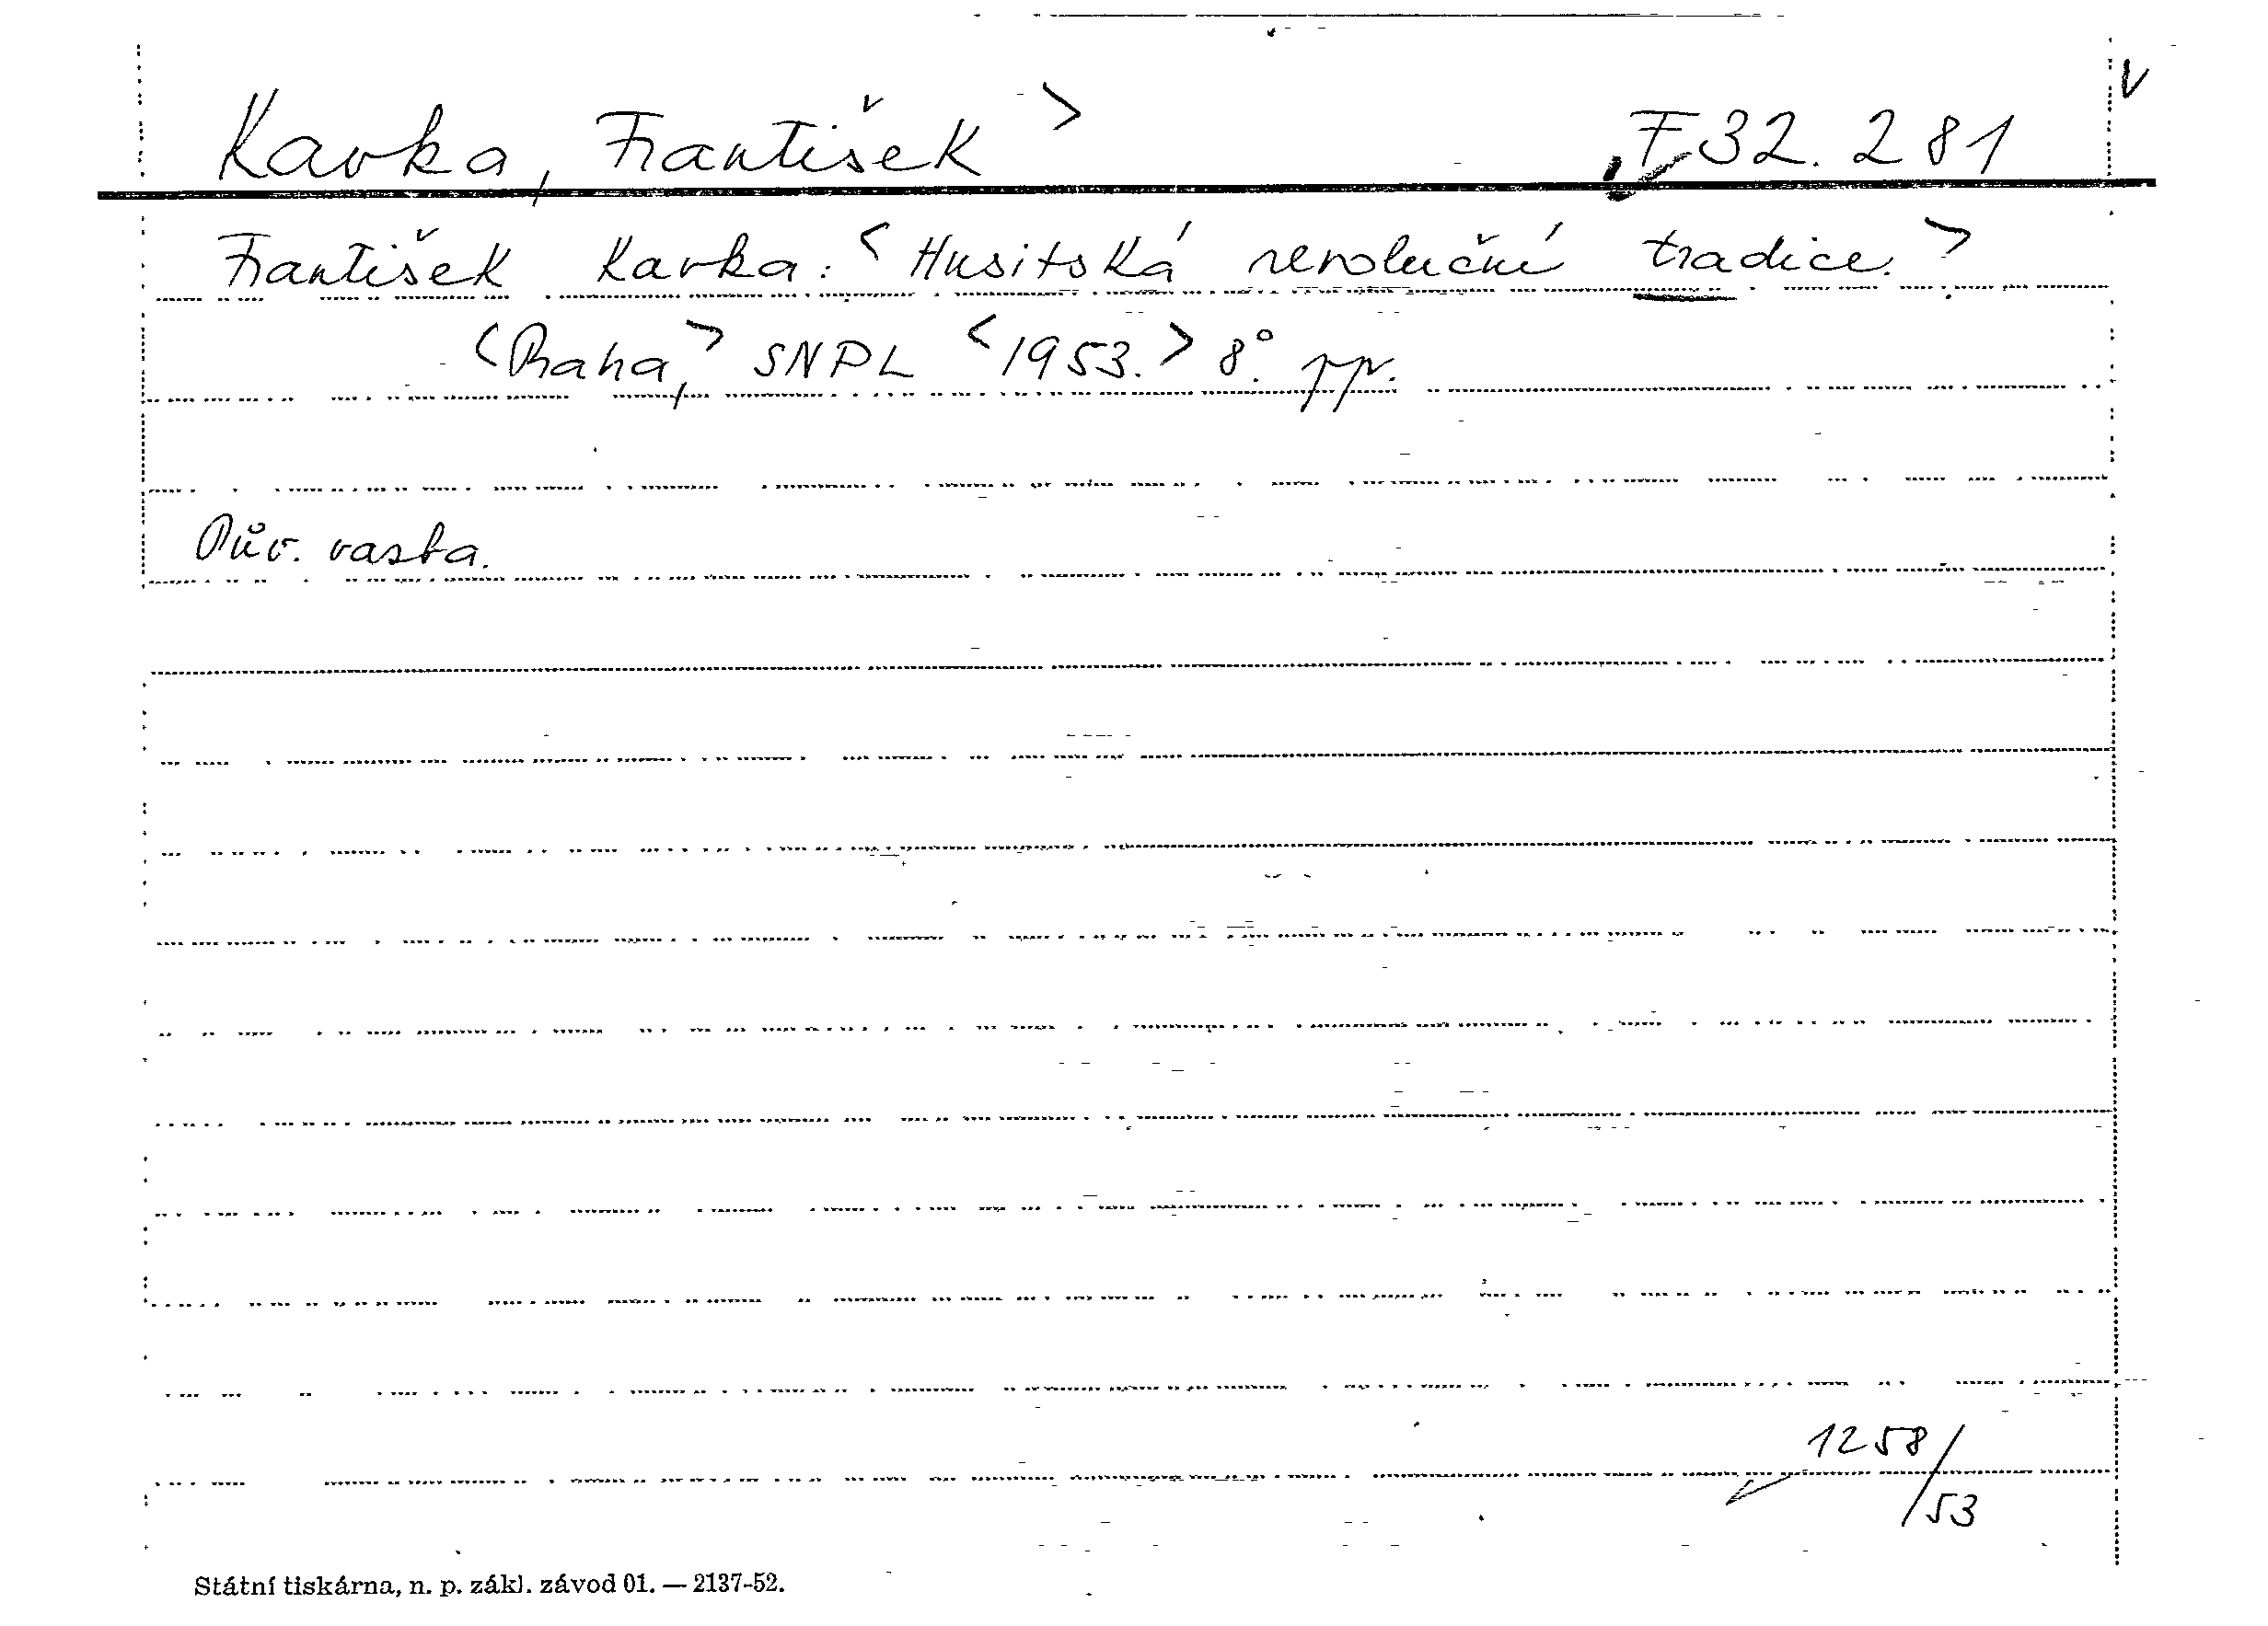 Kavka, František > F 32.281 v
František Kavka: <Husitská revoluční tradice.>
<Praha,> SNPL <1953.> 8°. pp.
Pův. vazba.
1258/
/53
Státní tiskárna, n. p. zákl. závod 01. — 2137-52.